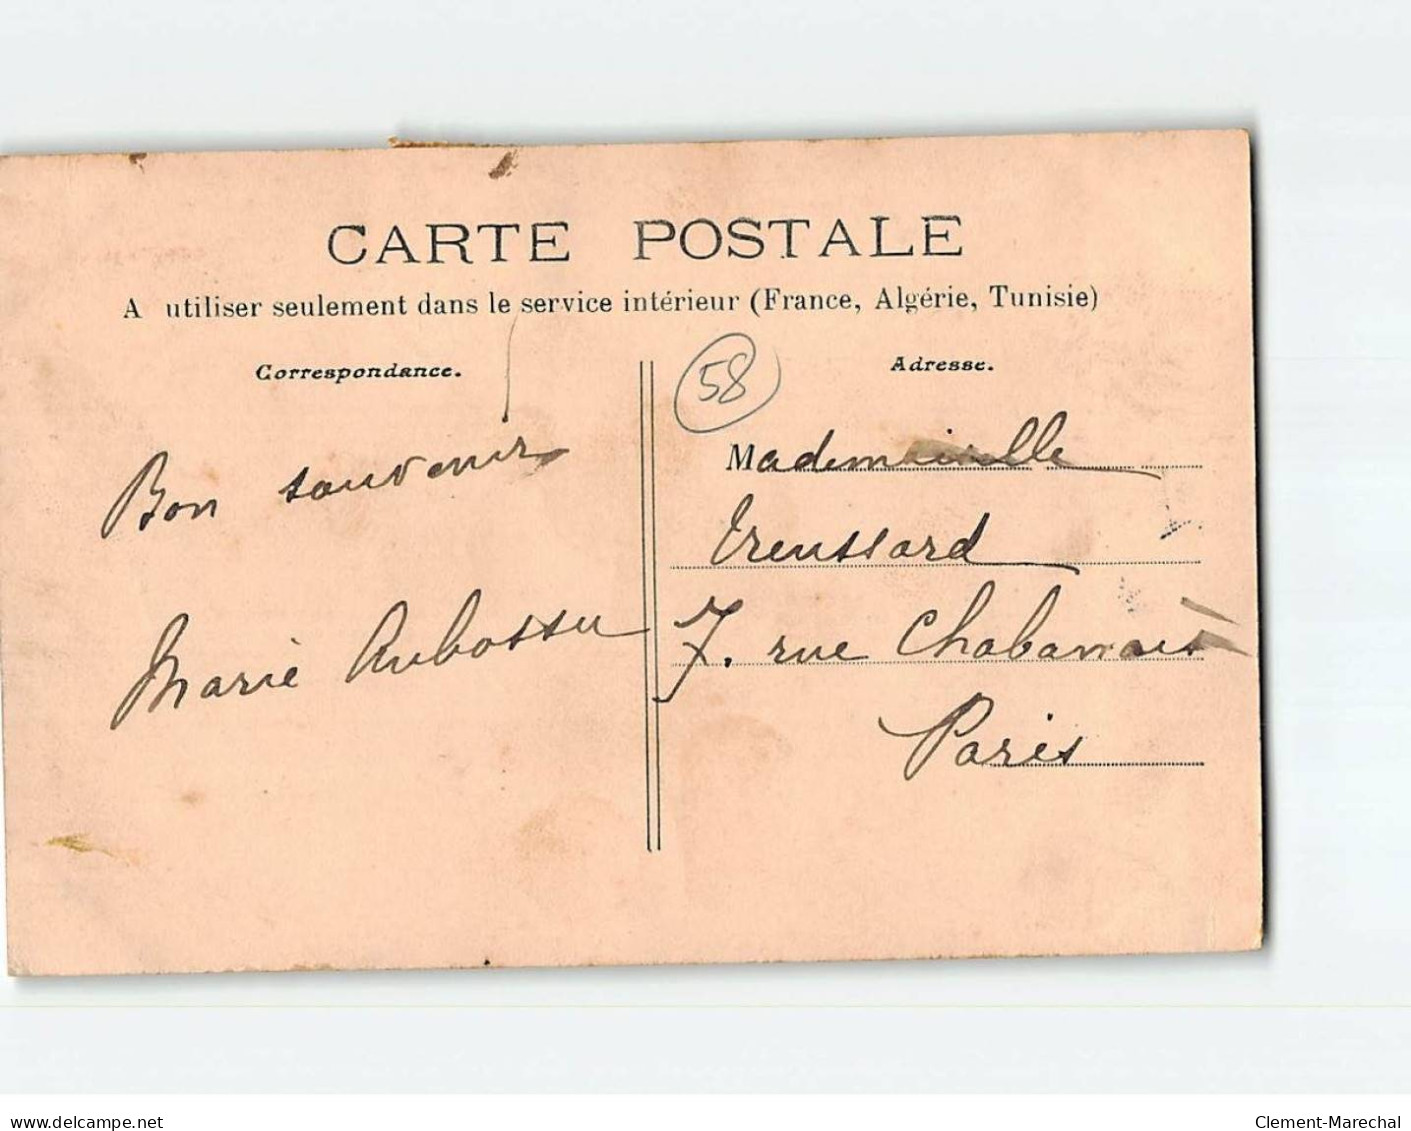 CARTE POSTALE
A utiliser seulement dans le service intérieur (France, Algérie, Tunisie)
Correspondance.
58
Adresse.
Bon souvenir
Marie
Mademoiselle
7. rue Chabanais
Paris
www.delcampe.net
Clement-Marechal